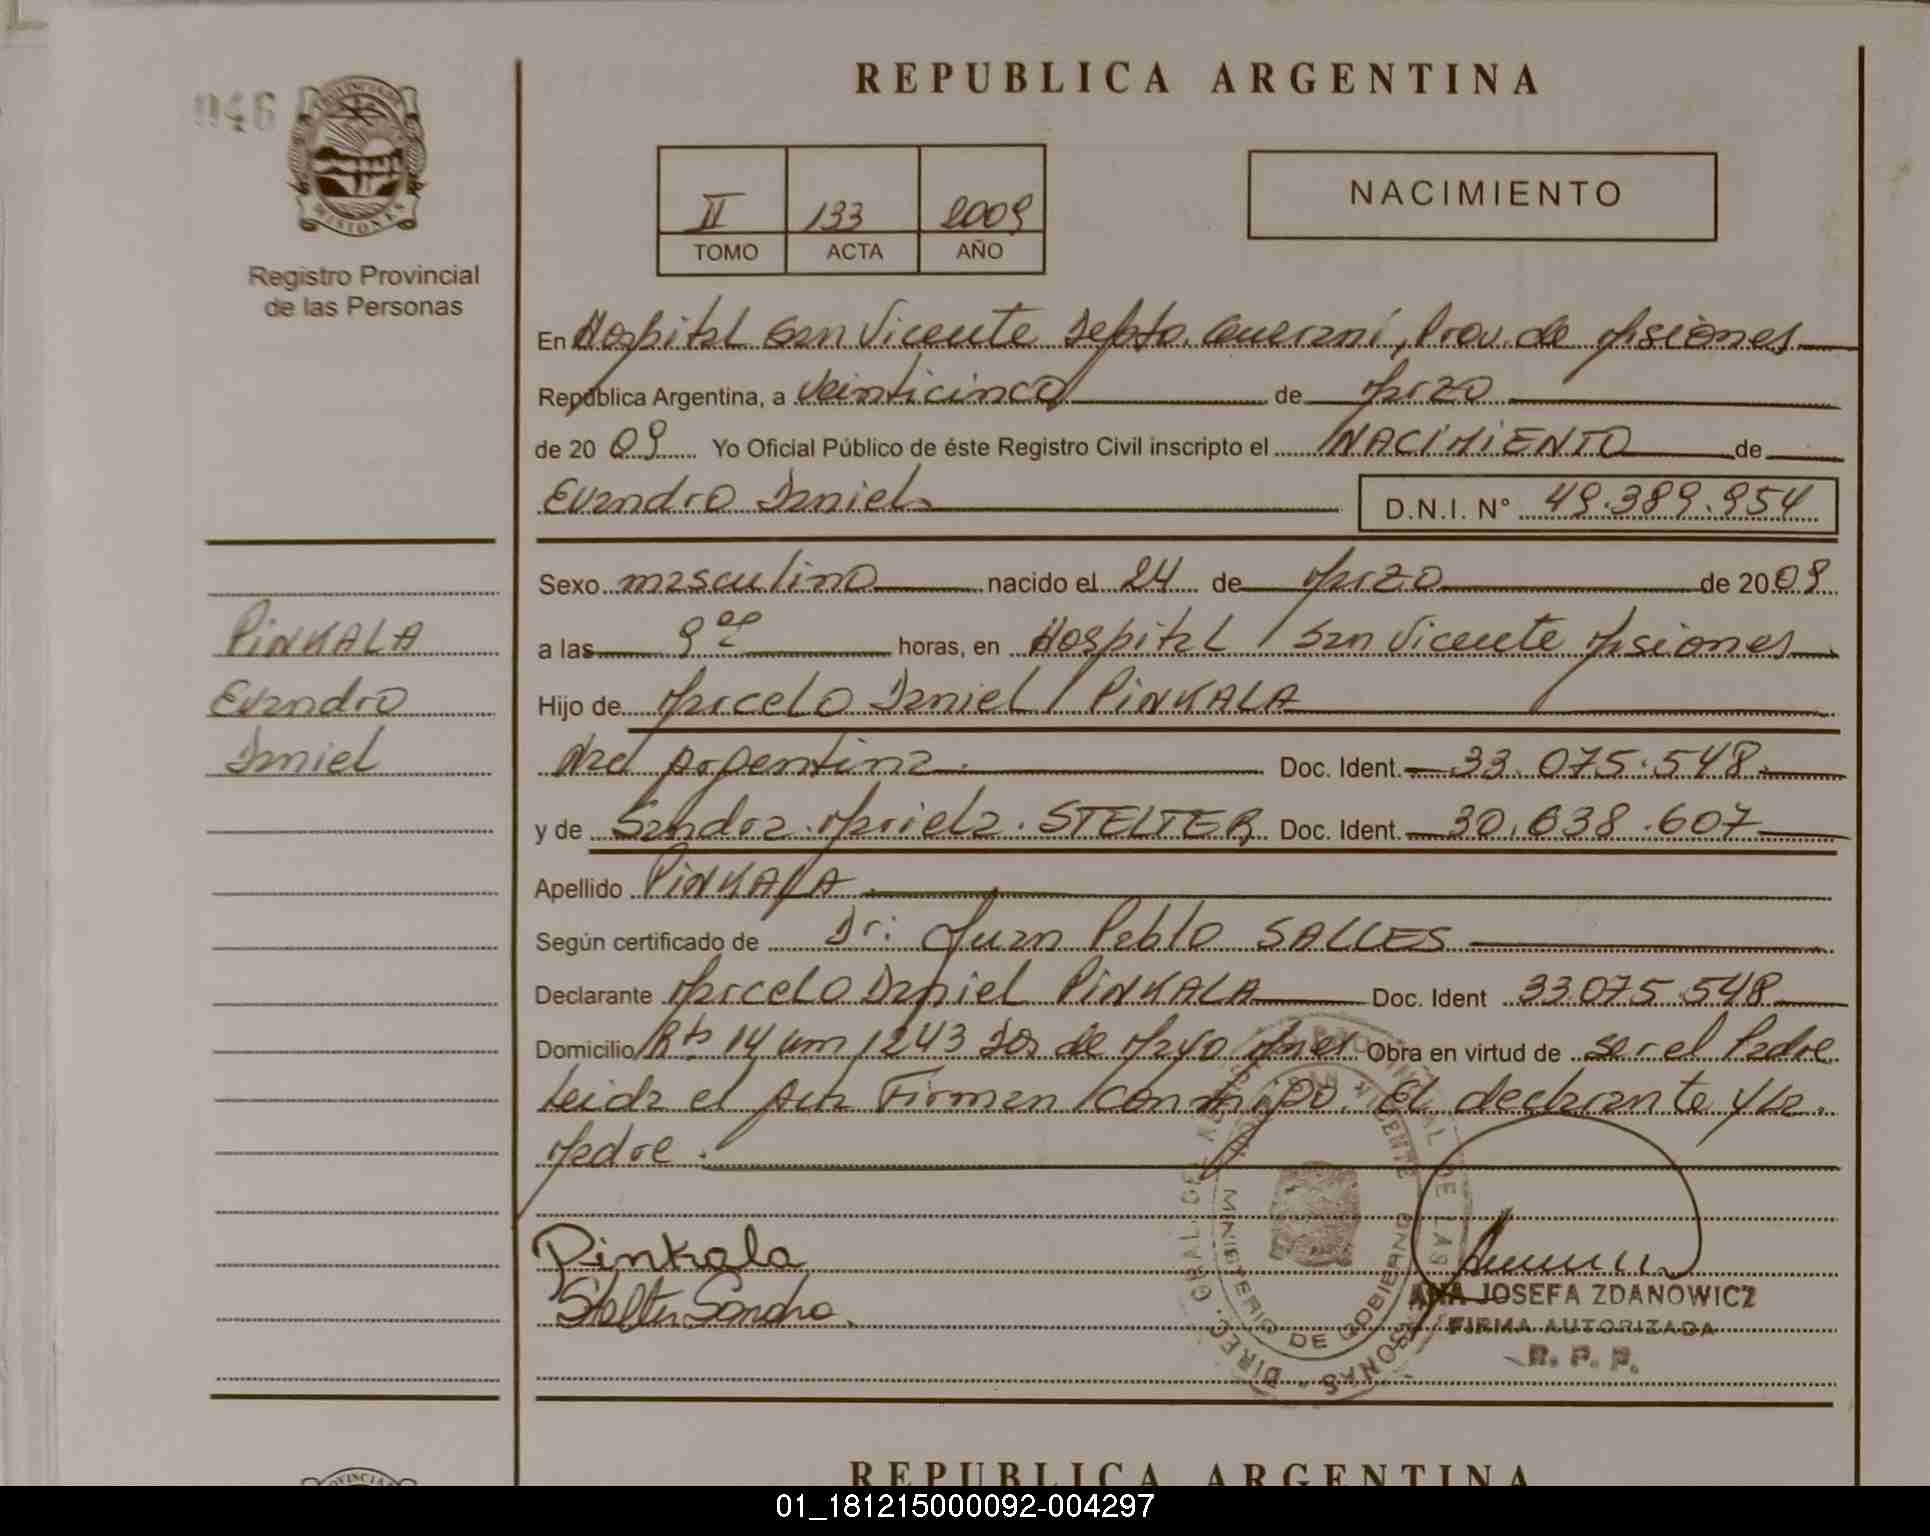 046
REPUBLICA ARGENTINA
PROVINCIA DE MISIONES
Registro Provincial
de las Personas
II 133 2009
TOMO ACTA AÑO
NACIMIENTO
En Hospital San Vicente Depto. Guaraní, Prov. de Misiones
República Argentina, a veinticinco de Marzo
de 2009 Yo Oficial Público de éste Registro Civil inscripto el NACIMIENTO de
Evandro Daniel D.N.I. N° 49.389.954
Sexo masculino nacido el 24 de Marzo de 2009
a las 9 horas, en Hospital San Vicente Misiones
Hijo de Marcelo Daniel PINKALA
Nac Argentina. Doc. Ident. 33.075.548
y de Sandra Mariela STELTER Doc. Ident. 30.638.607
Apellido PINKALA
Según certificado de Dr: Juan Pablo SALLES
Declarante Marcelo Daniel PINKALA Doc. Ident 33075548
Domicilio Rta 14 km 1243 Dos de Mayo Mnes Obra en virtud de ser el Padre
Leida el Acta Firman conmigo. El declarante y la
Madre.
PINKALA
Evandro
Daniel
Pinkala
Stelter Sandra.
DIREC. GRAL. DEL REGISTRO PROVINCIAL DE LAS PERSONAS
SAN VICENTE
MINISTERIO DE GOBIERNO
ANA JOSEFA ZDANOWICZ
FIRMA AUTORIZADA
R. P. P.
REPUBLICA ARGENTINA
01_181215000092-004297